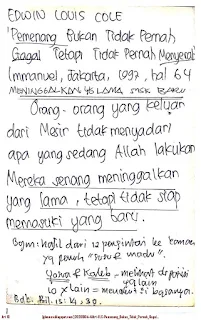 EDWIN LOUIS COLE
"Pemenang Bukan Tidak Pernah
Gagal Tetapi Tidak Pernah Menyerah"
Immanuel, Jakarta, 1997, hal 64
MENINGGALKAN YG LAMA MSK BARU
Orang-orang yang keluar
dari Mesir tidak menyadari
apa yang sedang Allah lakukan
Mereka senang meninggalkan
yang lama, tetapi tidak siap
memasuki yang baru.
Bgm: hasil dari 12 pengintai ke tanah
yg penuh "susu & madu".
Yosua & Kaleb = melihat dr posisi
ya lain
10 x lain =
Bdk. Bil. 13: 4, 30.